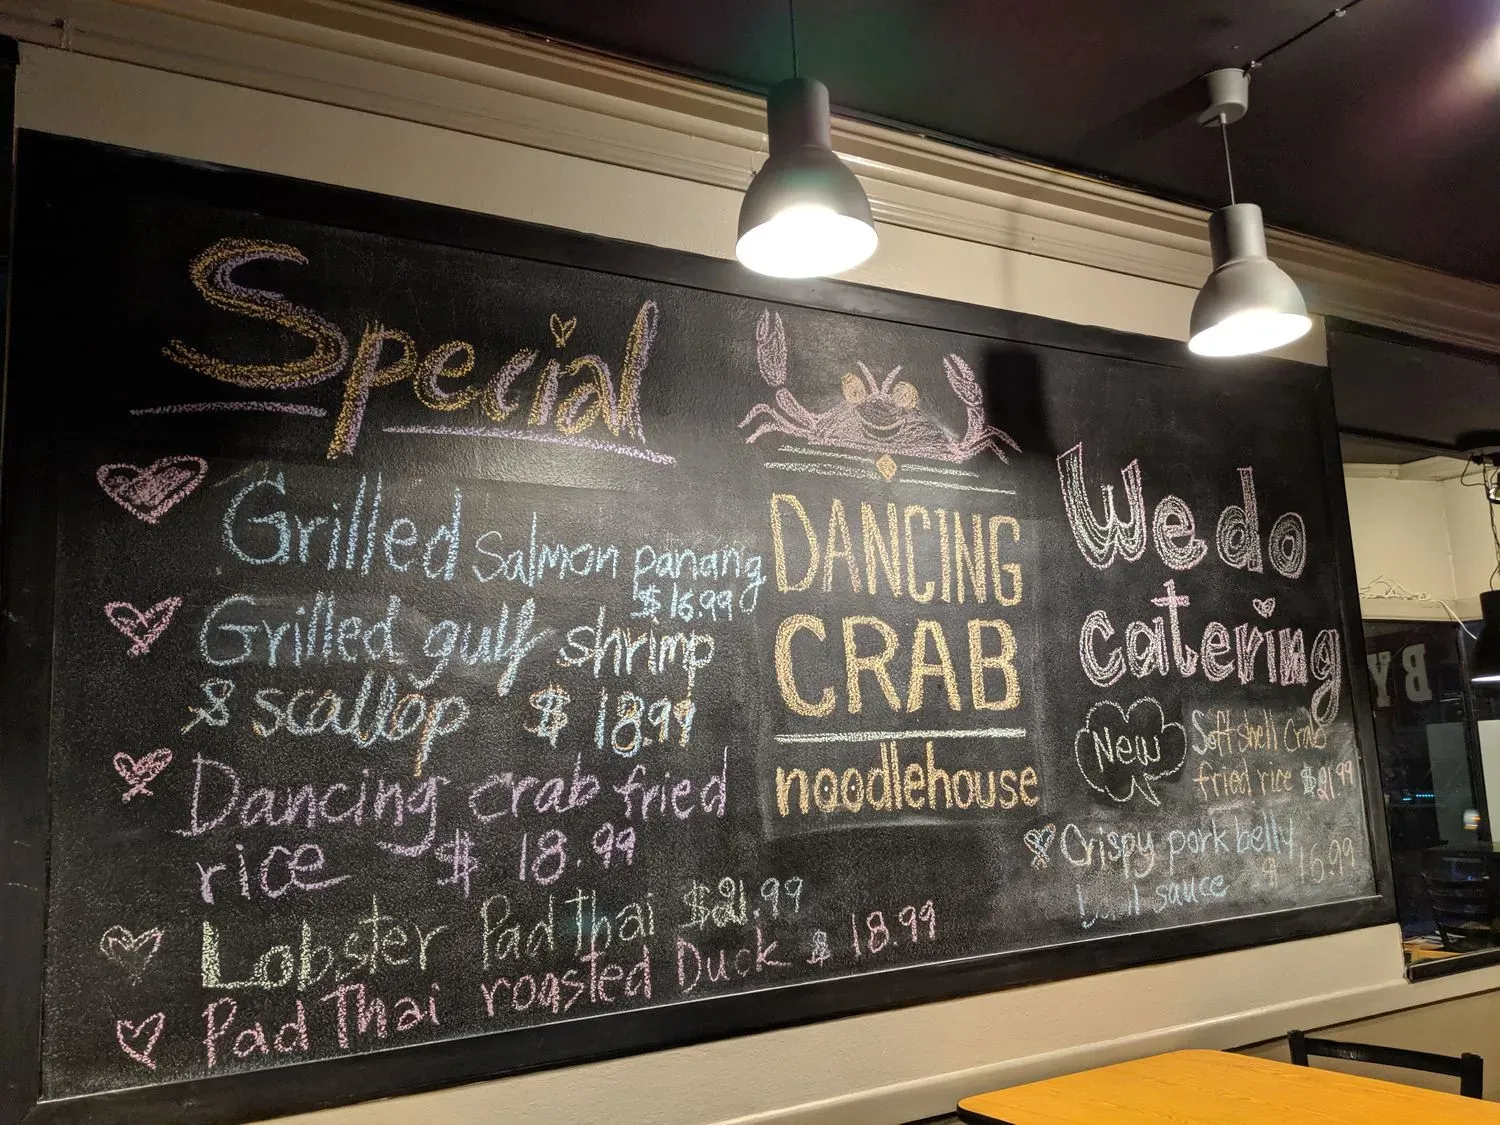 Special
Grilled salmon panang
$16.99
Grilled gulf shrimp
& scallop $18.99
Dancing crab fried
rice $18.99
Lobster Pad Thai $21.99
Pad Thai roasted Duck $18.99
DANCING
CRAB
noodlehouse
We do
catering
New
Soft shell Crab
fried rice $21.99
Crispy pork belly
sauce $16.99
BY